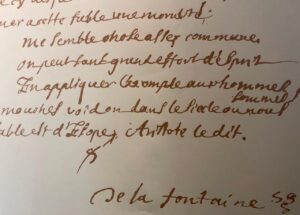 uer a cette fable une moralité;
me semble chose assez commune.
on peut sans grand effort d'esprit
En appliquer l'exemple aux hommes
mouches void on dans le siecle ou nous
sommes
able est d'Esope, Aristote le dit.
De la fontaine